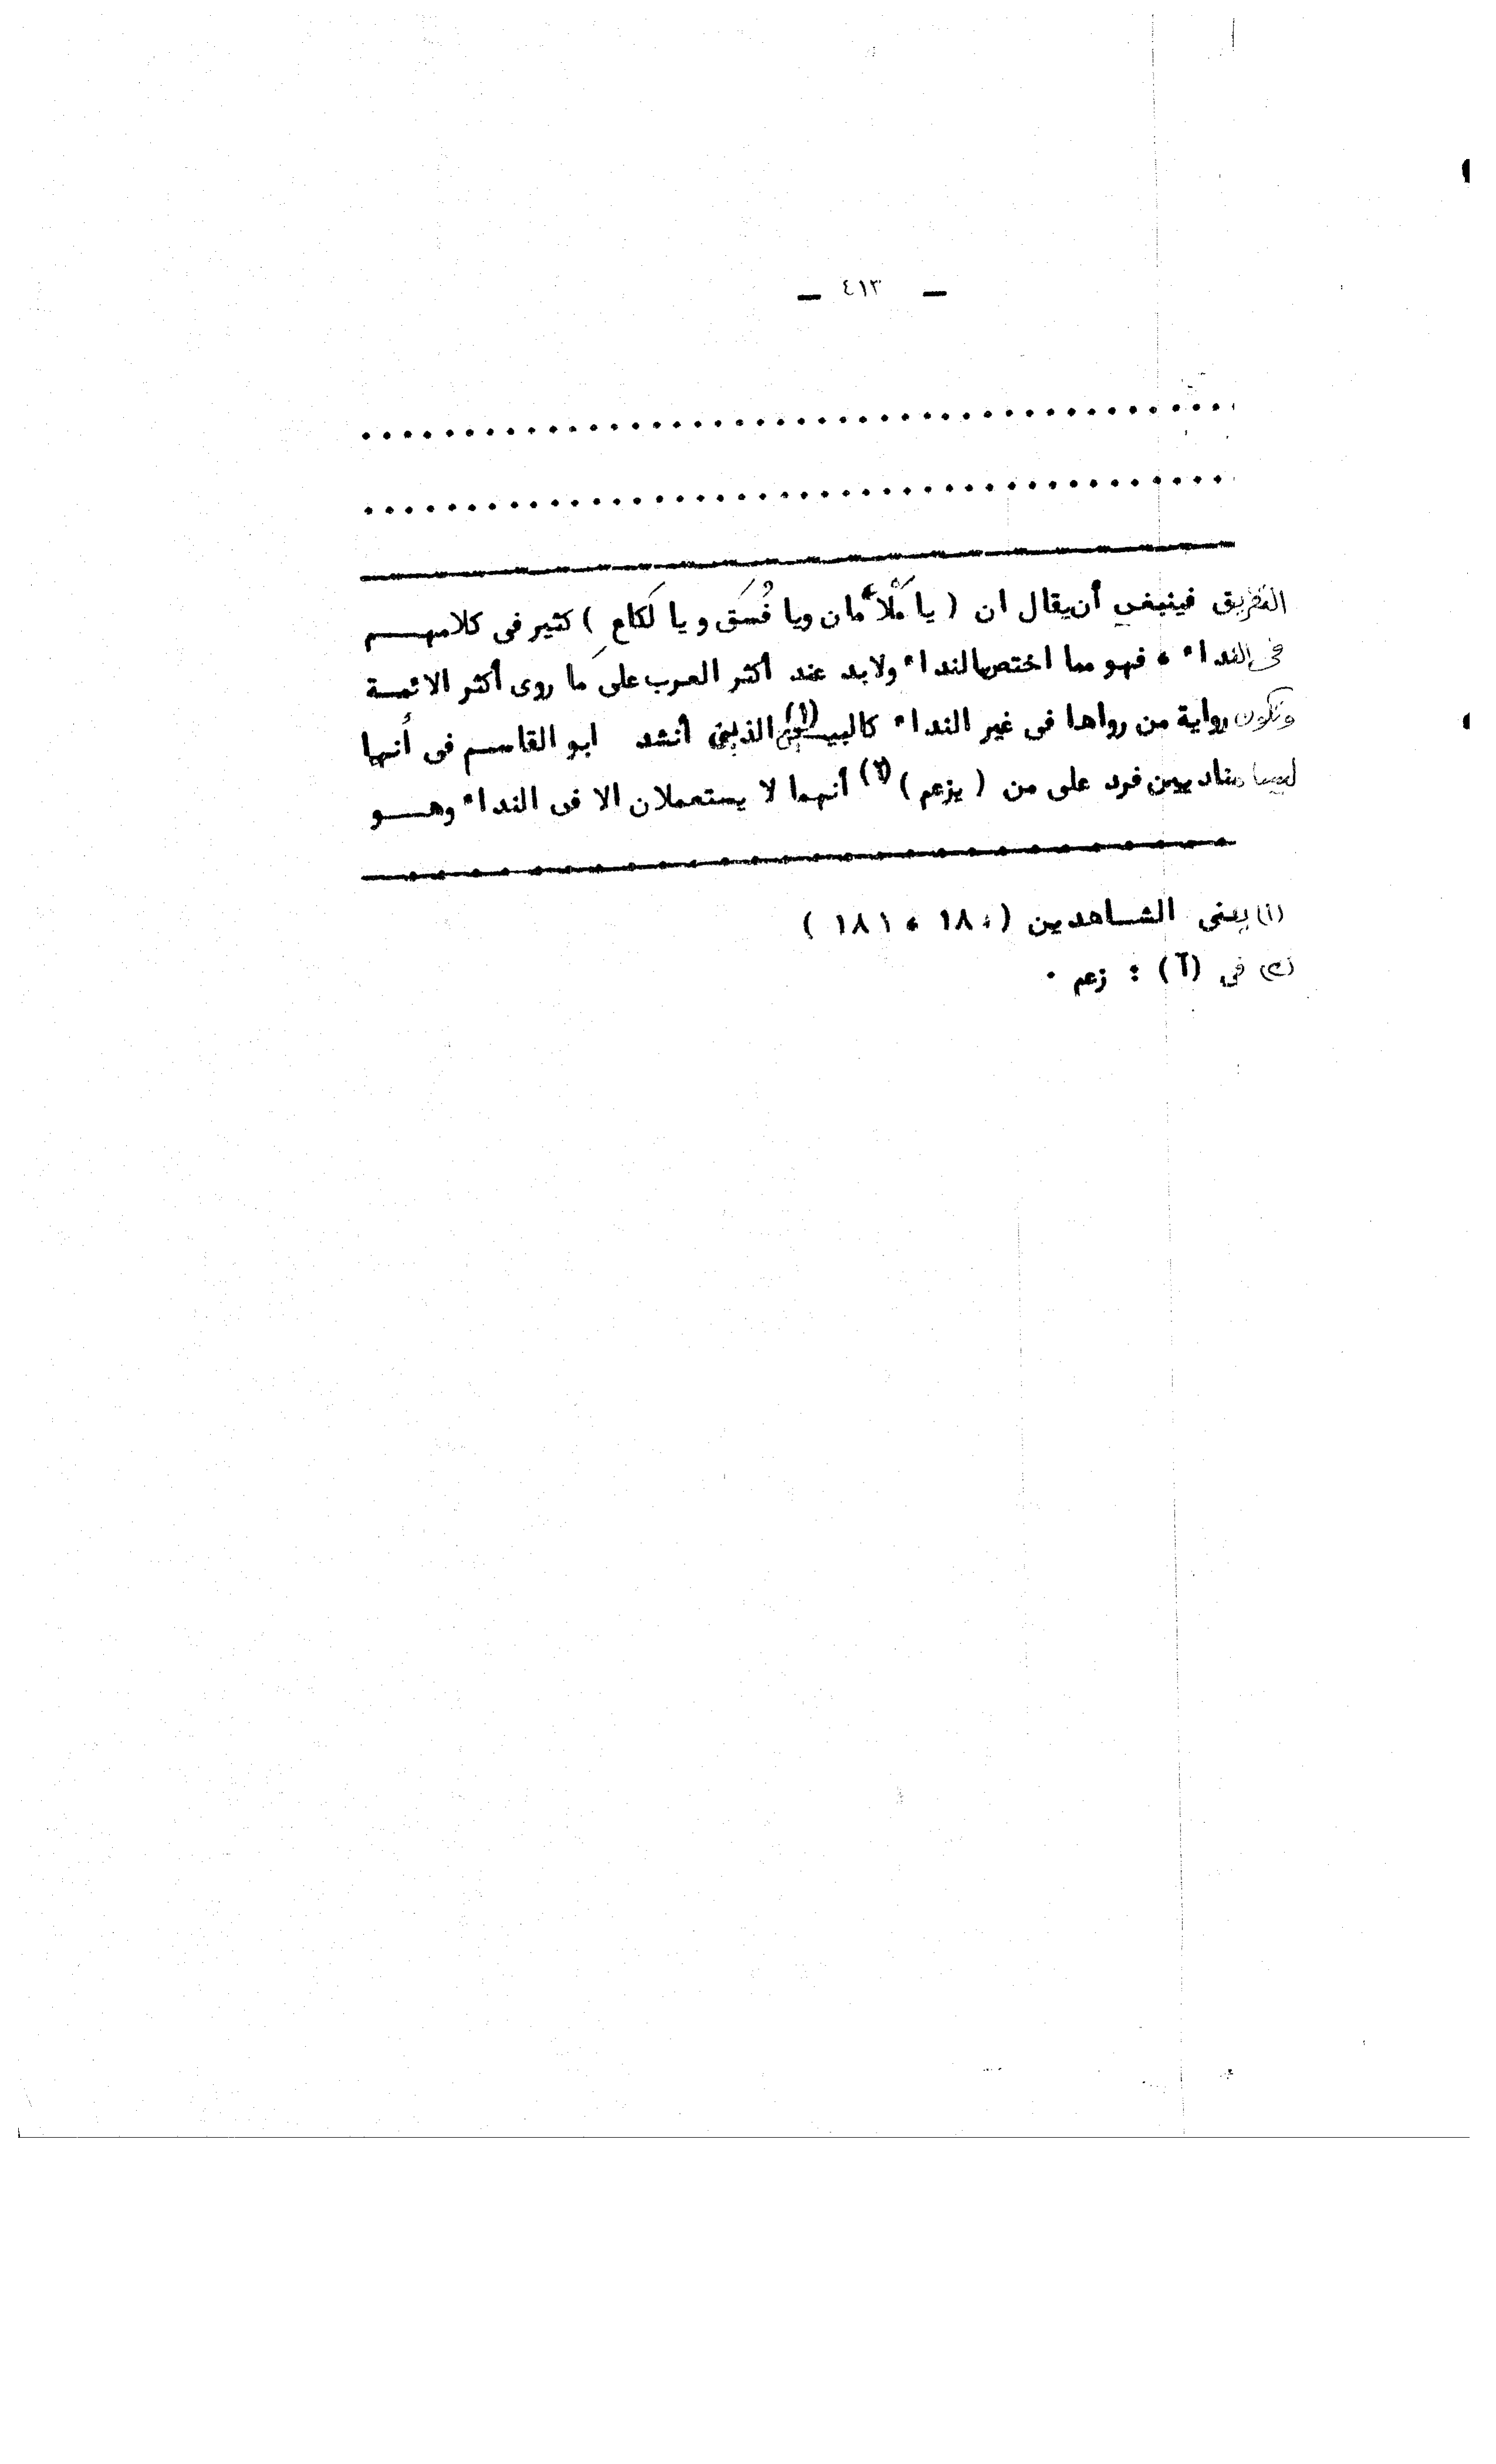 — ٤١٣ —
الطريق فينبغى أن يقال ان ( يا مَلْأَمان ويا فُسَق ويا لَكاعِ ) كثير فى كلامهم
فى النداء ، فهو مما اختص بالنداء ولابد عند أكثر العرب على ما روى أكثر الائمة
وتكون رواية من رواها فى غير النداء كالبيتين (١) الذين أنشد ابو القاسم فى أنها
ليسا مناديين فرد على من ( يزعم ) (٢) أنهما لا يستعملان الا فى النداء وهو
(١) يعنى الشاهدين ( ١٨٠ ، ١٨١ )
(٢) فى (آ) : زعم .